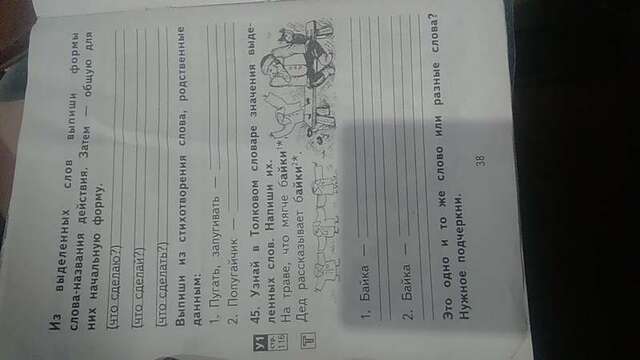 Из выделенных слов выпиши формы
слова-названия действия. Затем — общую для
них начальную форму.
(что сделаю?)
(что сделай?)
(что сделать?)
Выпиши из стихотворения слова, родственные
данным:
1. Пугать, запугивать —
2. Попугайчик —
У1
стр.
116
45. Узнай в Толковом словаре значения выде-
ленных слов. Напиши их.
На траве, что мягче байки¹*
Дед рассказывает байки²*.
Т
1. Байка —
2. Байка —
Это одно и то же слово или разные слова?
Нужное подчеркни.
38